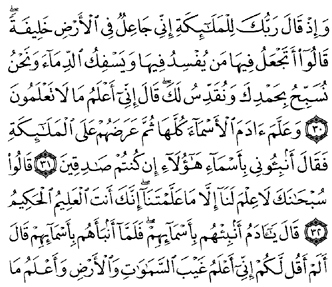 وَإِذْ قَالَ رَبُّكَ لِلْمَلَـٰٓئِكَةِ إِنِّى جَاعِلٌ فِى ٱلْأَرْضِ خَلِيفَةً ۖ
قَالُوٓا۟ أَتَجْعَلُ فِيهَا مَن يُفْسِدُ فِيهَا وَيَسْفِكُ ٱلدِّمَآءَ وَنَحْنُ
نُسَبِّحُ بِحَمْدِكَ وَنُقَدِّسُ لَكَ ۖ قَالَ إِنِّىٓ أَعْلَمُ مَا لَا تَعْلَمُونَ
٣٠ وَعَلَّمَ ءَادَمَ ٱلْأَسْمَآءَ كُلَّهَا ثُمَّ عَرَضَهُمْ عَلَى ٱلْمَلَـٰٓئِكَةِ
فَقَالَ أَنۢبِـُٔونِى بِأَسْمَآءِ هَـٰٓؤُلَآءِ إِن كُنتُمْ صَـٰدِقِينَ ٣١ قَالُوا۟
سُبْحَـٰنَكَ لَا عِلْمَ لَنَآ إِلَّا مَا عَلَّمْتَنَآ ۖ إِنَّكَ أَنتَ ٱلْعَلِيمُ ٱلْحَكِيمُ
٣٢ قَالَ يَـٰٓـَٔادَمُ أَنۢبِئْهُم بِأَسْمَآئِهِمْ ۖ فَلَمَّآ أَنۢبَأَهُم بِأَسْمَآئِهِمْ قَالَ
أَلَمْ أَقُل لَّكُمْ إِنِّىٓ أَعْلَمُ غَيْبَ ٱلسَّمَـٰوَٰتِ وَٱلْأَرْضِ وَأَعْلَمُ مَا